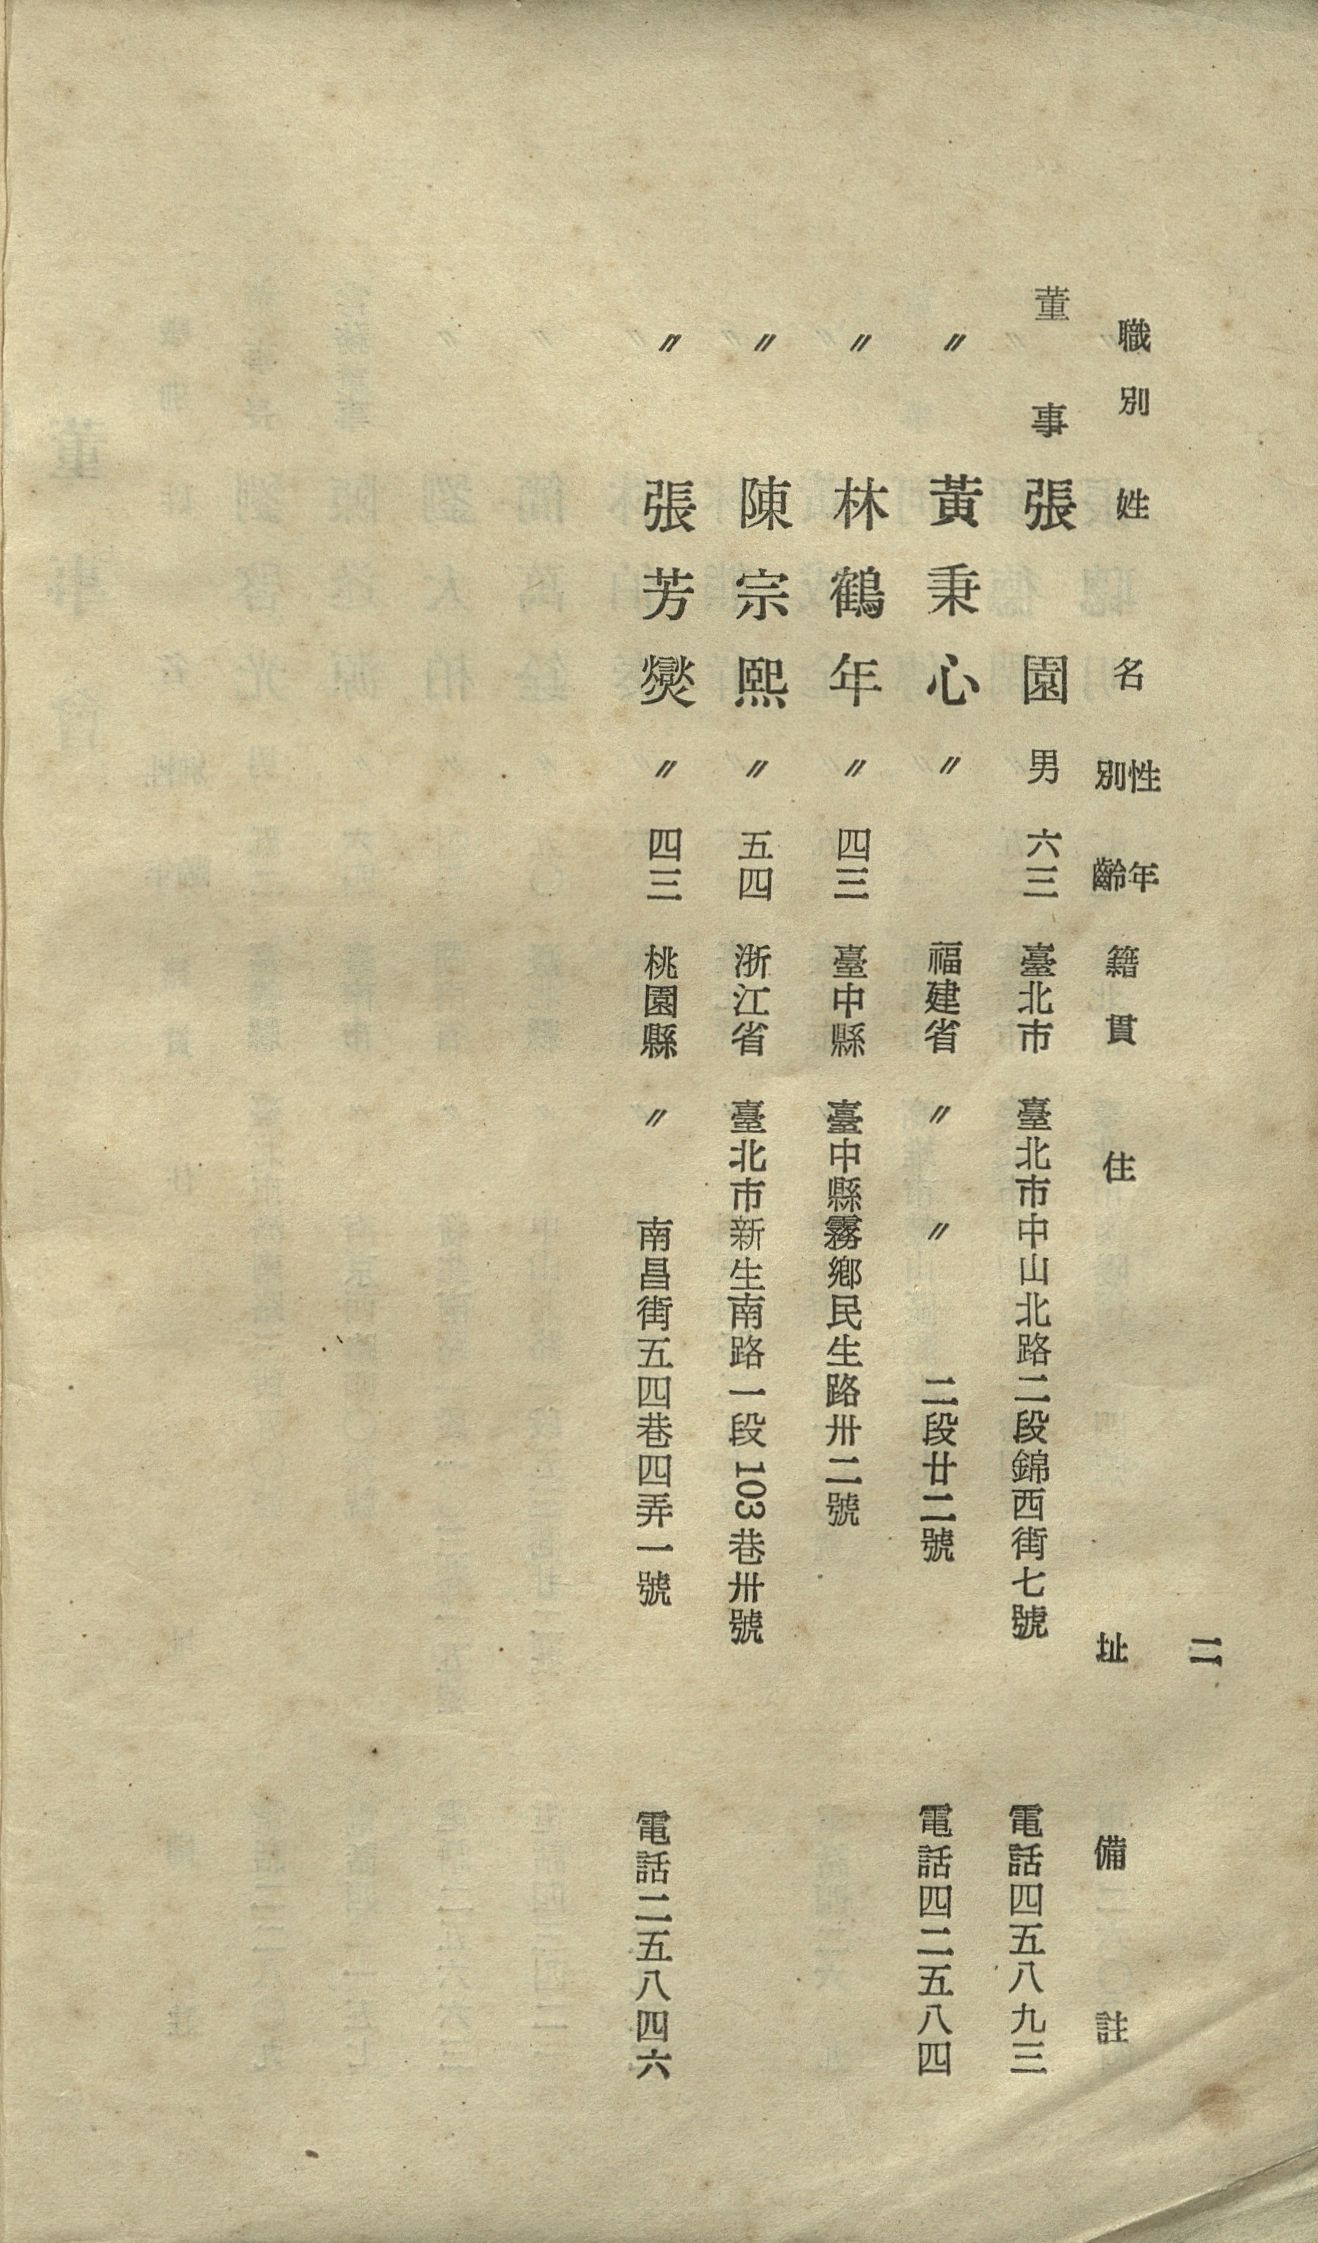 二
職別 姓名 性別 年齡 籍貫 住址 備註
董事 張園 男 六三 臺北市 臺北市中山北路二段錦西街七號 電話四五八九三
〃 黃秉心 〃 福建省 〃 〃 二段廿二號 電話四二五八四
〃 林鶴年 〃 四三 臺中縣 臺中縣霧鄉民生路卅二號
〃 陳宗熙 〃 五四 浙江省 臺北市新生南路一段103巷卅號
〃 張芳燮 〃 四三 桃園縣 〃 南昌街五四巷四弄一號 電話二五八四六